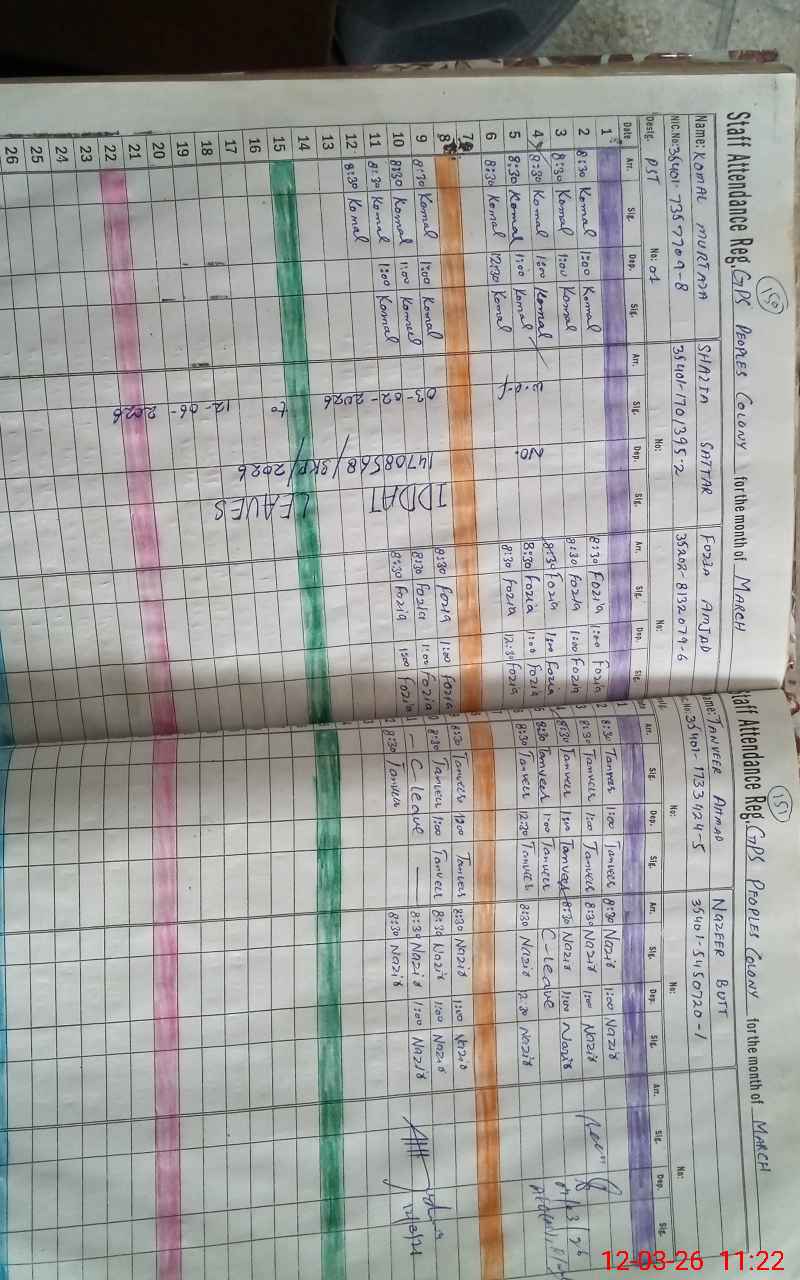 150
Staff Attendance Reg. GPS PEOPLES COLONY for the month of MARCH
Name: KOMAL MURTAZA SHAZIA SATTAR FOZIA AMJAD
NIC.No: 35401-7357709-8 35401-1701395-2 35202-8132079-6
Desig. PST No: 01 No: No:
Date Arr. Sig. Dep. Sig. Arr. Sig. Dep. Sig. Arr. Sig. Dep. Sig.
1
2 8:30 Komal 1:00 Komal 8:30 Fozia 1:00 Fozia
3 8:30 Komal 1:00 Komal 8:30 Fozia 1:00 Fozia
4 8:30 Komal 1:00 Komal 8:30 Fozia 1:00 Fozia
5 8:30 Komal 1:00 Komal 8:30 Fozia 1:00 Fozia
6 8:30 Komal 12:30 Komal 8:30 Fozia 12:30 Fozia
7
8
9 8:30 Komal 1:00 Komal 8:30 Fozia 1:00 Fozia
10 8:30 Komal 1:00 Komal 8:30 Fozia 1:00 Fozia
11 8:30 Komal 1:00 Komal 8:30 Fozia 1:00 Fozia
12 8:30 Komal
13
14
15
16
17
18
19
20
21
22
23
24
25
26
IDDAT LEAVES
No. 14708568/SKP/2026
w.e.f 03-02-2026 to 12-06-2026
151
Staff Attendance Reg. GPS PEOPLES COLONY for the month of MARCH
Name: TANVEER AHMAD NAZEER BUTT
35401-1733424-5 35401-5450720-1
No: No: No:
Arr. Sig. Dep. Sig. Arr. Sig. Dep. Sig. Arr. Sig. Dep. Sig.
8:30 Tanveer 1:00 Tanveer 8:30 Nazir 1:00 Nazir
8:30 Tanveer 1:00 Tanveer 8:30 Nazir 1:00 Nazir
8:30 Tanveer 1:00 Tanveer 8:30 Nazir 1:00 Nazir
8:30 Tanveer 1:00 Tanveer C-leave
8:30 Tanveer 12:30 Tanveer 8:30 Nazir 2:30 Nazir
8:30 Tanveer 1:00 Tanveer 8:30 Nazir 1:00 Nazir
8:30 Tanveer 1:00 Tanveer 8:30 Nazir 1:00 Nazir
— C-leave — 8:30 Nazir 1:00 Nazir
8:30 Tanveer 8:30 Nazir
12-03-26 11:22